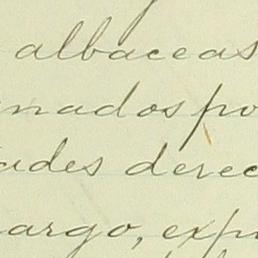 albaceas
nados po
ades derec
argo, exp